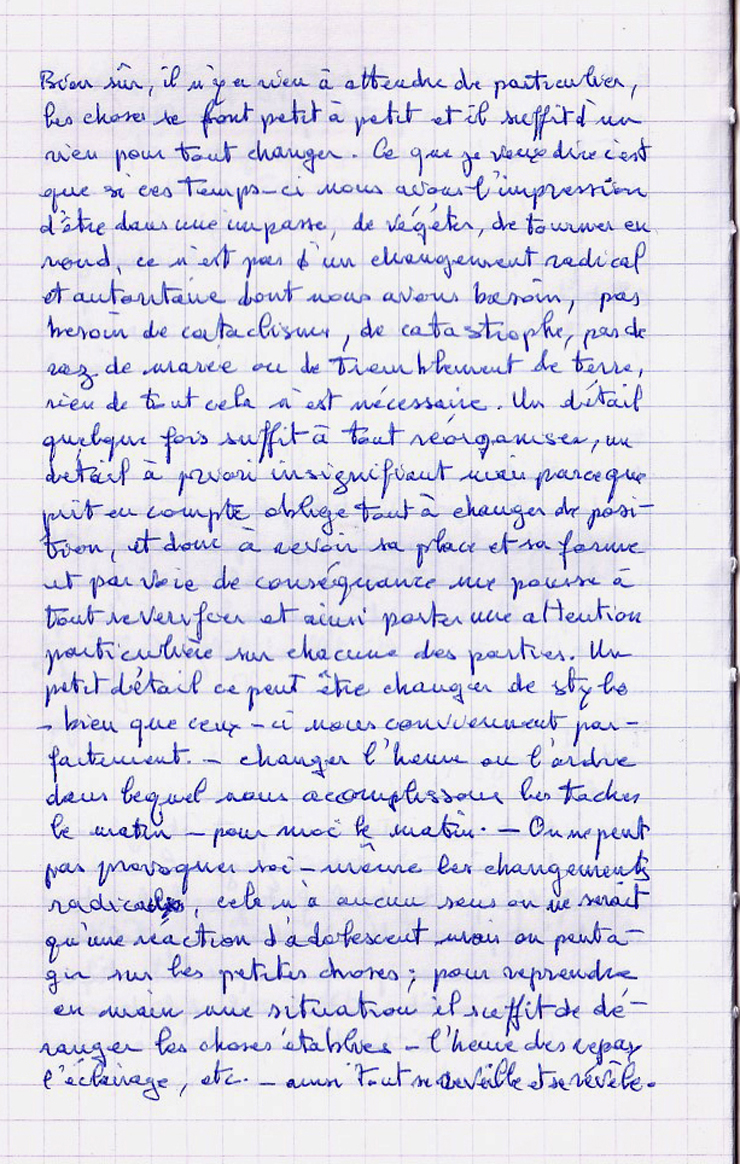 Bien sûr, il n'y a rien à attendre de particulier,
les choses se font petit à petit et il suffit d'un
rien pour tout changer. Ce que je veux dire c'est
que si ces temps-ci nous avons l'impression
d'être dans une impasse, de végéter, de tourner en
rond, ce n'est pas d'un changement radical
et autoritaire dont nous avons besoin, pas
besoin de cataclisme, de catastrophe, pas de
raz de marée ou de tremblement de terre,
rien de tout cela n'est nécessaire. Un détail
quelque fois suffit à tout réorganiser, un
détail à priori insignifiant mais parce que
prit en compte oblige tout à changer de posi-
tion, et donc à revoir sa place et sa forme
et par voie de conséquance me pousse à
tout reverifier et ainsi porter une attention
particulière sur chacune des parties. Un
petit détail ce peut être changer de stylo
- bien que ceux-ci nous conviennent par-
faitement. - changer l'heure ou l'ordre
dans lequel nous acomplissons les taches
le matin - pour moi le matin. - On ne peut
pas provoquer soi-même les changements
radicaux, cela n'a aucun sens ou ne serait
qu'une réaction d'adolescent mais on peut a-
gir sur les petites choses; pour reprendre
en main une situation il suffit de dé-
ranger les choses établies - l'heure des repas
l'éclairage, etc. - ainsi tout se réveille et se révèle.